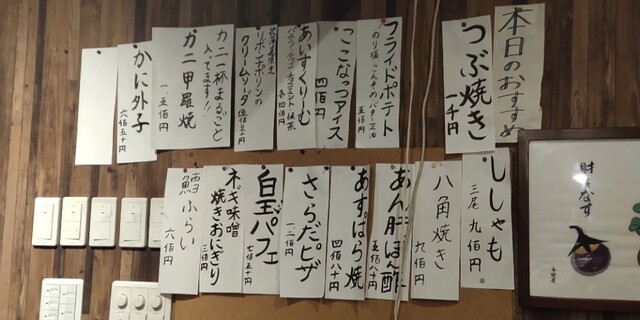 本日のおすすめ
つぶ焼き
一千円
フライドポテト
のり塩・コンソメ・バター正油
五佰円
ここなっつアイス
四佰円
あいすくりーむ
バニラ・チョコ・チョコミント・抹茶
各四佰円
北海道限定
リボンナポリンの
クリームソーダ
伍佰五十円
カニ一杯まるごと
入ってます!!
カニ甲羅焼
一、五佰円
かに外子
六佰五十円
ししゃも
三尾 九佰円
八角焼き
九佰円
あん肝ぽん酢
五佰八十円
あすぱら焼
四佰八十円
さらだピザ
一、二佰円
白玉パフェ
七佰五十円
ネギ味噌
焼きおにぎり
三佰円
ふらい
六佰円
財をなす